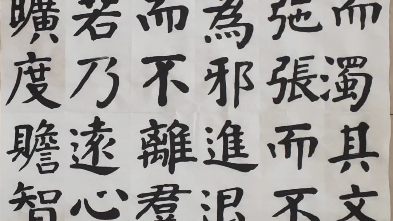 而濁其文
弛張而不
為邪進退
而不離羣
若乃遠心
曠度贍智